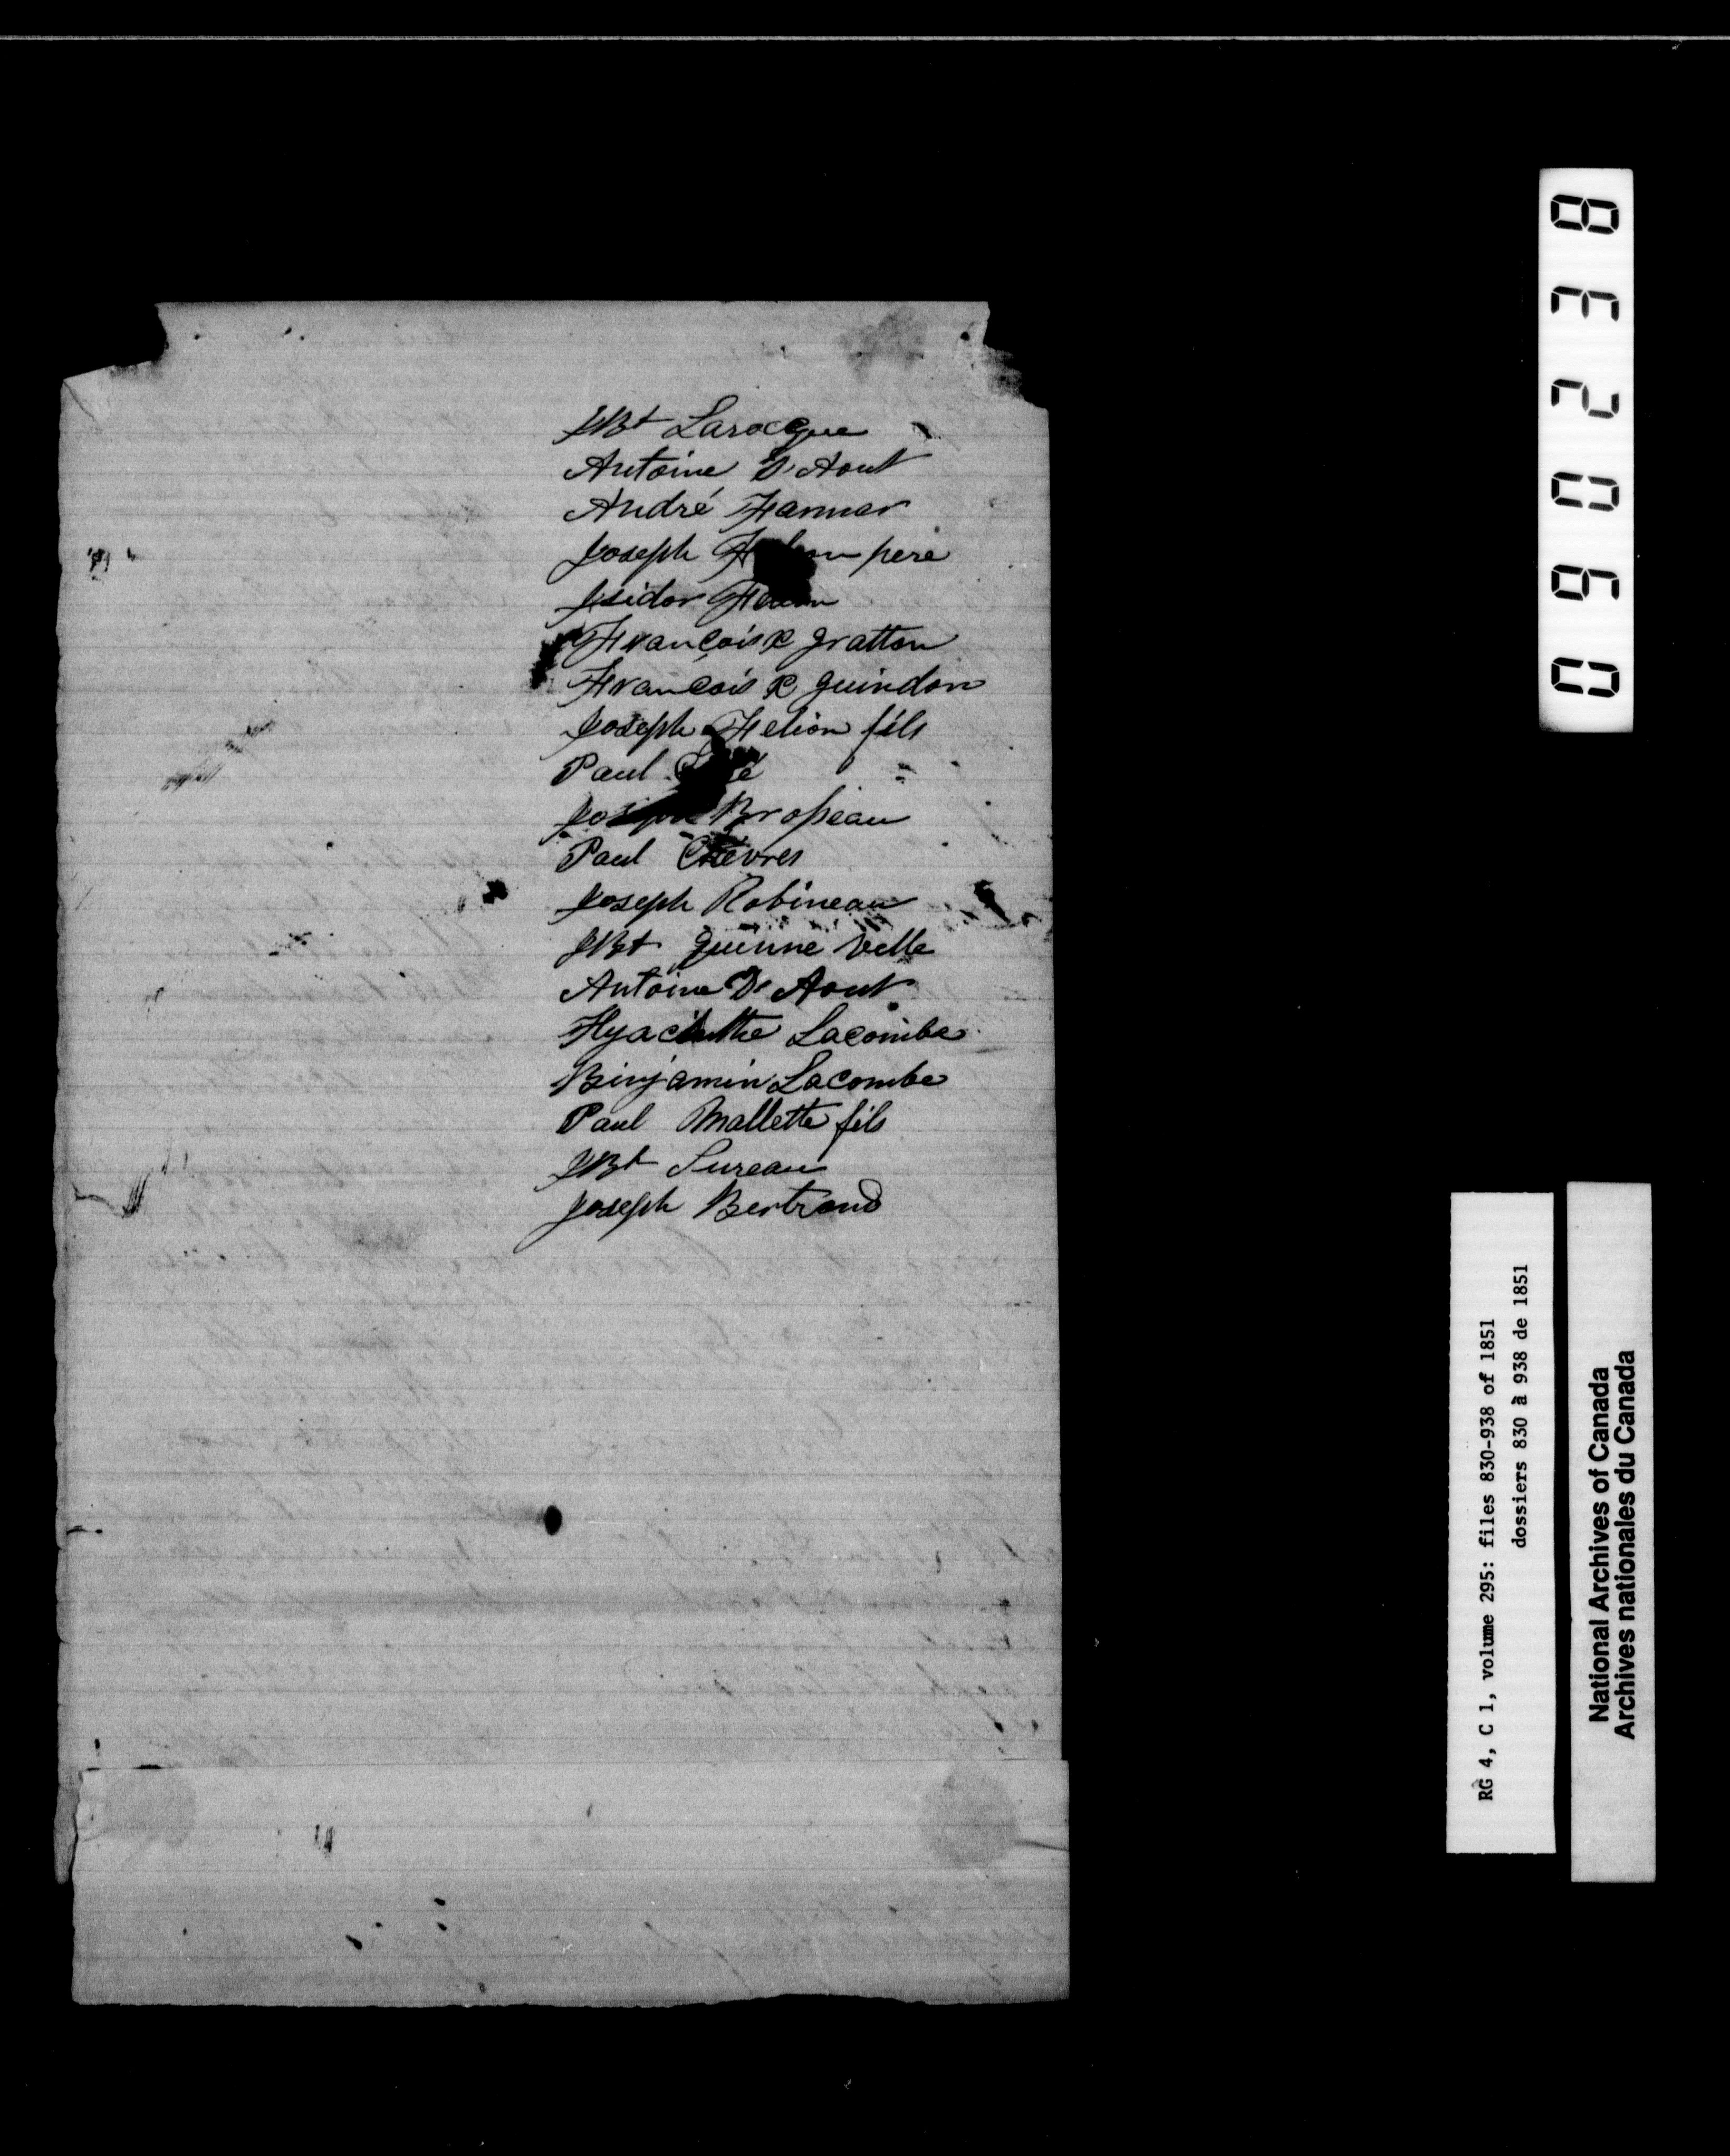 JBt Larocque
Antoine D'Aout
André Hanner
Joseph pere
Isidor
François X gratton
François X guindon
Joseph Felion fils
Paul
Joseph Brosseau
Paul Chevres
Joseph Robineau
JBt guenne velle
Antoine D'Aout
Hyacinthe Lacombe
Binjamin Lacombe
Paul Mallette fils
JBt Sureau
Joseph Bertrand
090238
RG 4, C 1, volume 295: files 830-938 of 1851
dossiers 830 à 938 de 1851
National Archives of Canada
Archives nationales du Canada